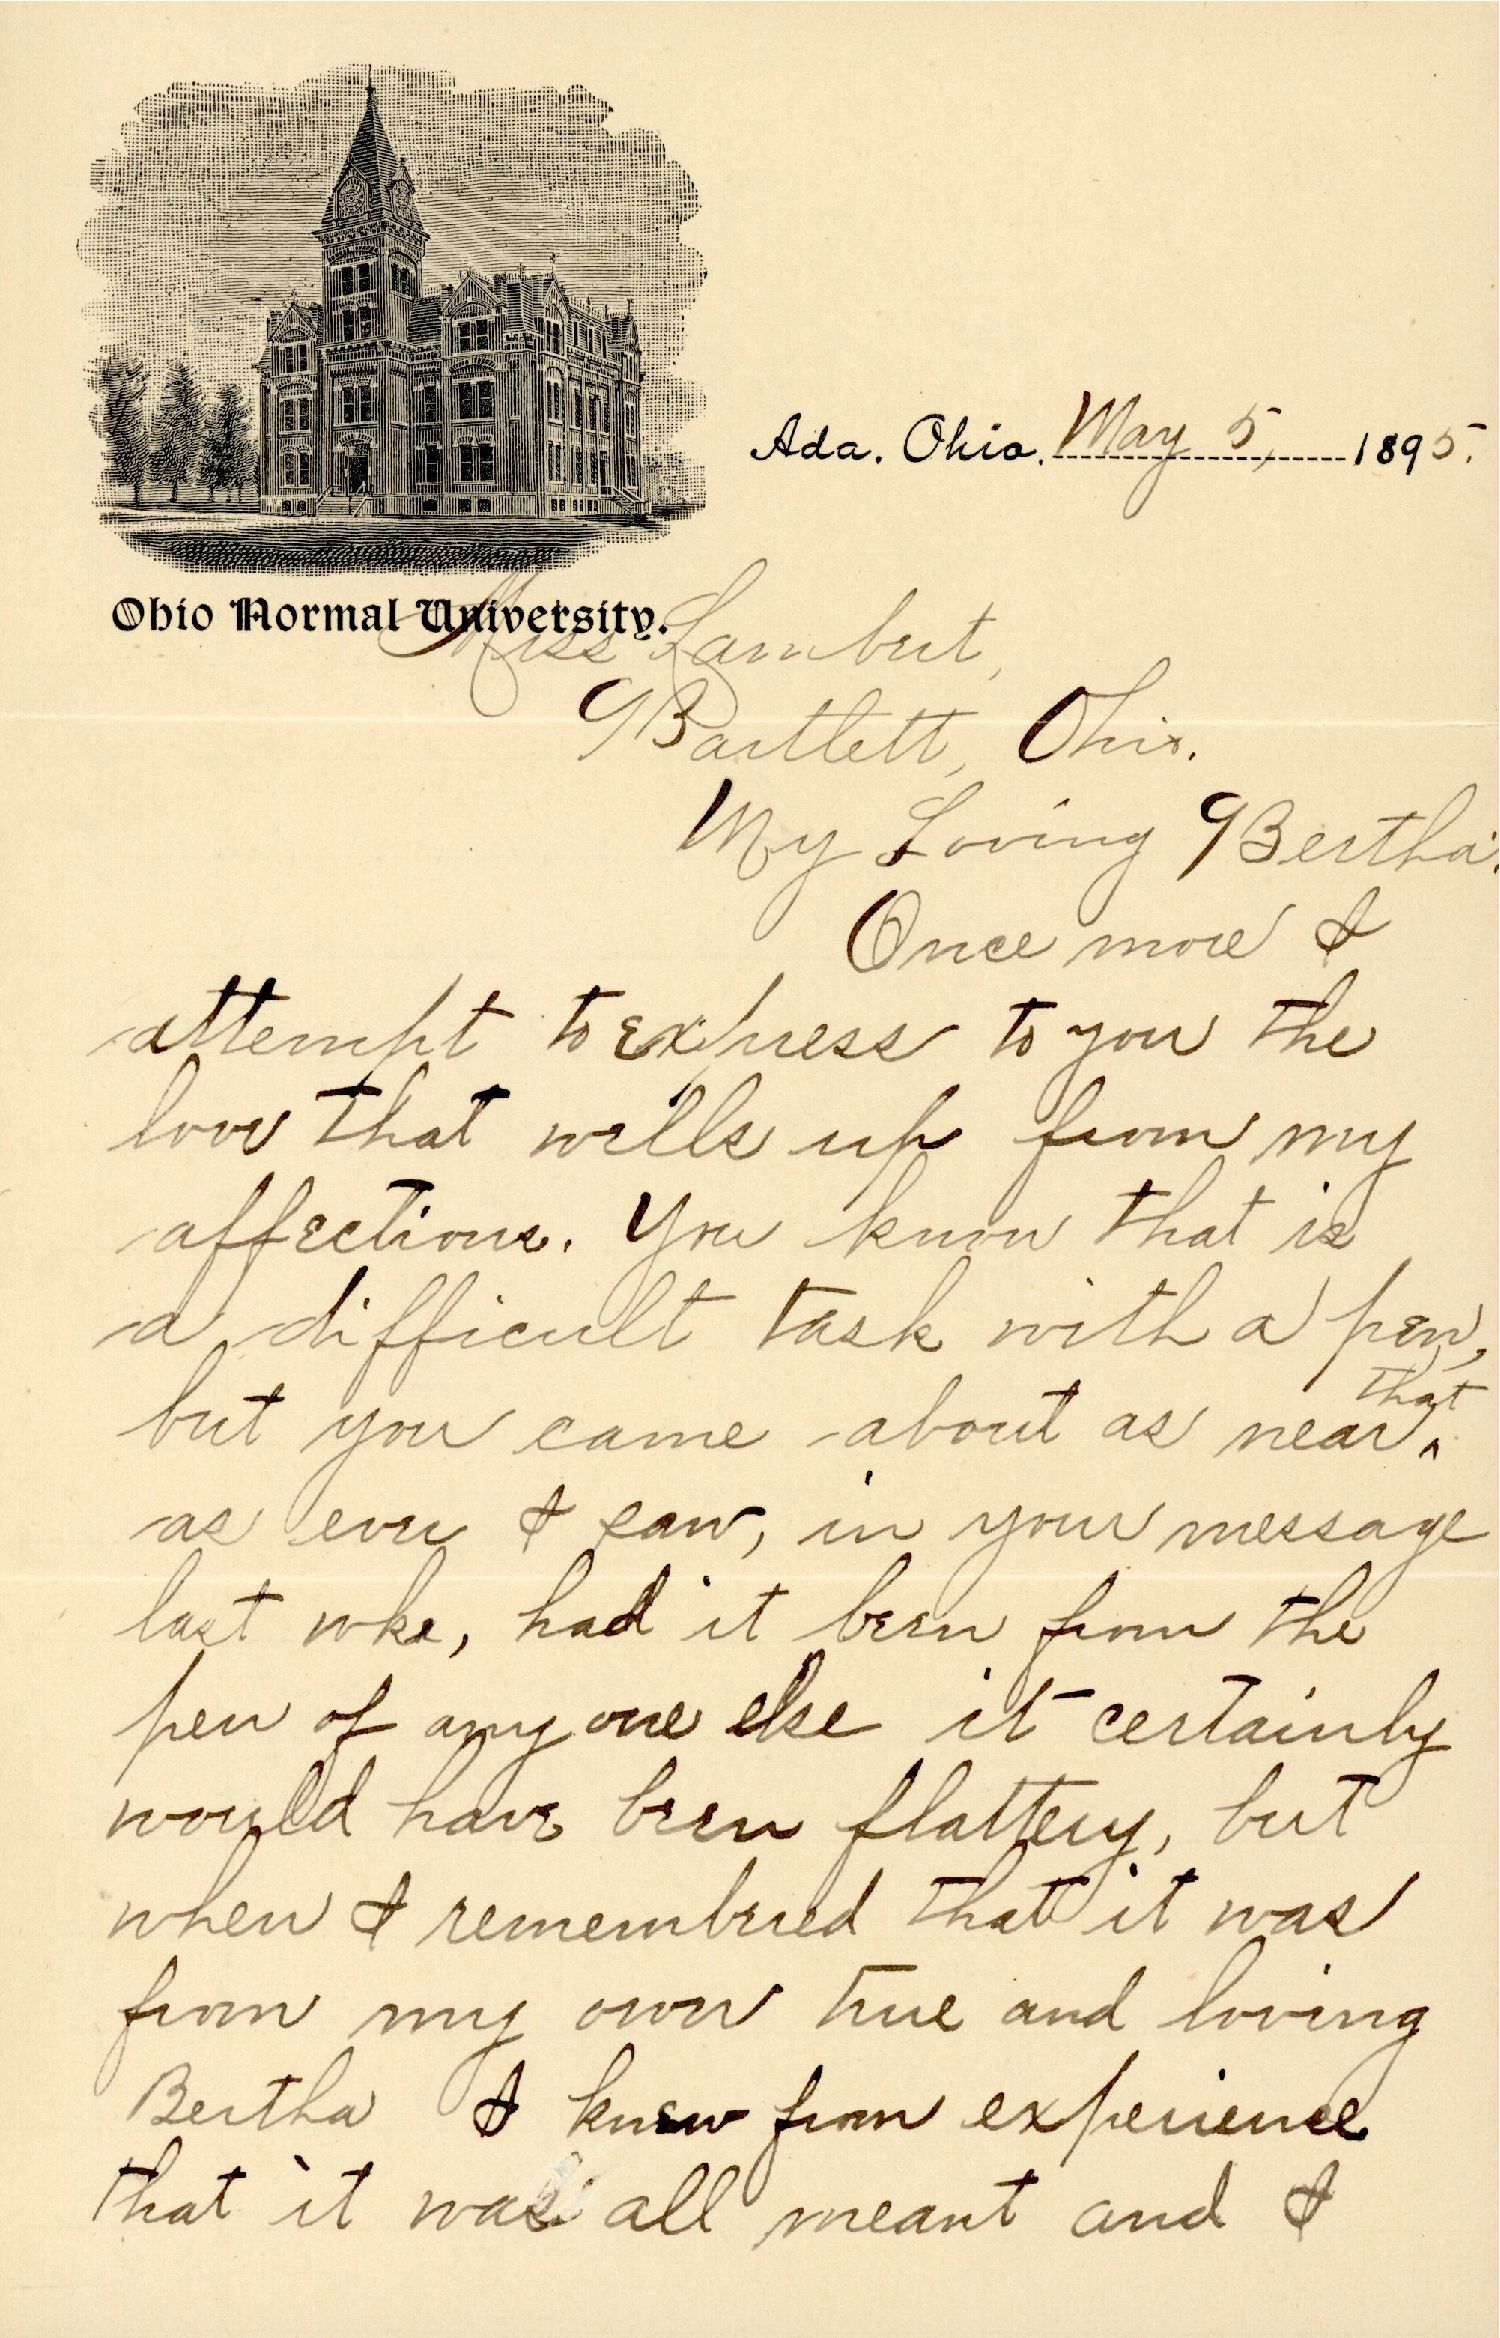 Ada. Ohio. May 5, 1895.
Ohio Normal University.
Miss Lambert,
Bartlett, Ohio.
My Loving Bertha:
Once more I
attempt to express to you the
love that wells up from my
affections. You know that is
a difficult task with a pen,
but you came about as near ^that
as ever I saw, in your message
last wke, had it been from the
pen of any one else it certainly
would have been flattery, but
when I remembered that it was
from my own true and loving
Bertha I knew from experience
that it was all meant and I